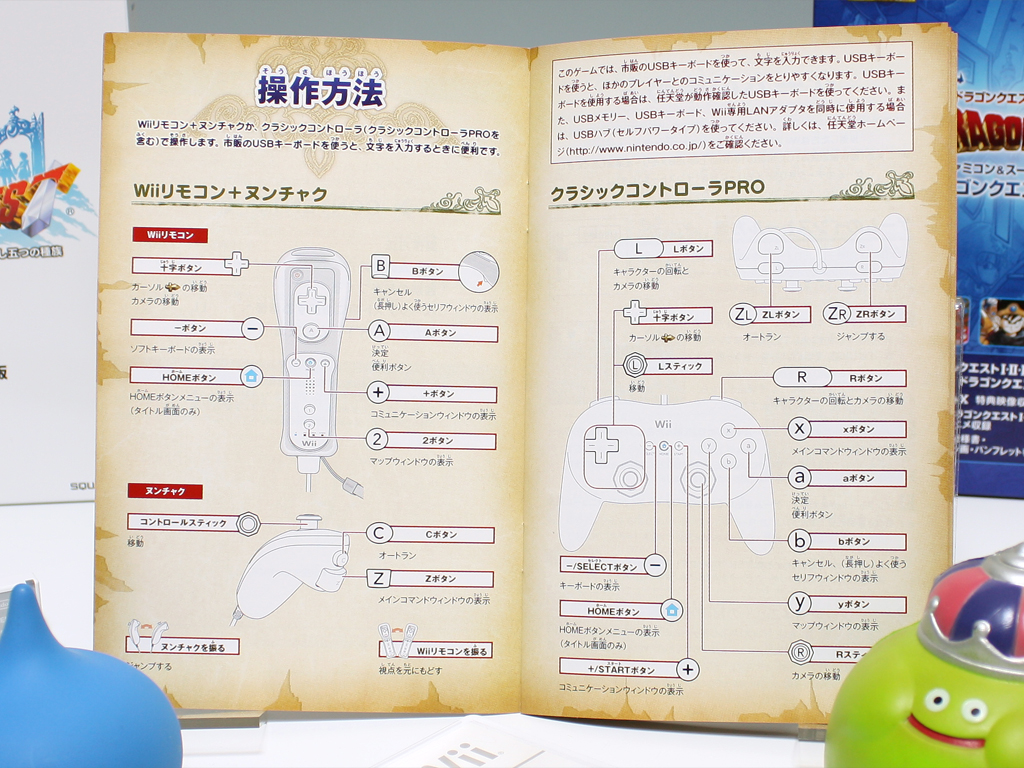 操作方法
Wiiリモコン+ヌンチャクか、クラシックコントローラ(クラシックコントローラPROを
含む)で操作します。市販のUSBキーボードを使うと、文字を入力するときに便利です。
Wiiリモコン+ヌンチャク
Wiiリモコン
十字ボタン
カーソル の移動
カメラの移動
−ボタン
ソフトキーボードの表示
HOMEボタン
HOMEボタンメニューの表示
(タイトル画面のみ)
B
Bボタン
キャンセル
(長押し)よく使うセリフウィンドウの表示
A
Aボタン
決定
便利ボタン
+
+ボタン
コミュニケーションウィンドウの表示
2
2ボタン
マップウィンドウの表示
Wii
ヌンチャク
コントロールスティック
移動
C
Cボタン
オートラン
Z
Zボタン
メインコマンドウィンドウの表示
ヌンチャクを振る
ジャンプする
Wiiリモコンを振る
視点を元にもどす
このゲームでは、市販のUSBキーボードを使って、文字を入力できます。USBキーボー
ドを使うと、ほかのプレイヤーとのコミュニケーションをとりやすくなります。USBキー
ボードを使用する場合は、任天堂が動作確認したUSBキーボードを使ってください。ま
た、USBメモリー、USBキーボード、Wii専用LANアダプタを同時に使用する場合
は、USBハブ(セルフパワータイプ)を使ってください。詳しくは、任天堂ホームペー
ジ(http://www.nintendo.co.jp/)をご確認ください。
クラシックコントローラPRO
L
Lボタン
キャラクターの回転と
カメラの移動
十字ボタン
カーソル の移動
L
Lスティック
移動
ZL
ZLボタン
オートラン
ZR
ZRボタン
ジャンプする
R
Rボタン
キャラクターの回転とカメラの移動
Wii
x
xボタン
メインコマンドウィンドウの表示
a
aボタン
決定
便利ボタン
b
bボタン
キャンセル、(長押し)よく使う
セリフウィンドウの表示
y
yボタン
マップウィンドウの表示
R
Rスティ
カメラの移動
−/SELECTボタン
−
キーボードの表示
HOMEボタン
HOMEボタンメニューの表示
(タイトル画面のみ)
+/STARTボタン
+
コミュニケーションウィンドウの表示
五つの種族
ドラゴンクエ
DRAGO
ァミコン&スー
ゴンクエ
クエストI・II・I
ドラゴンクエスト
特典映像収
メ収録
Wii